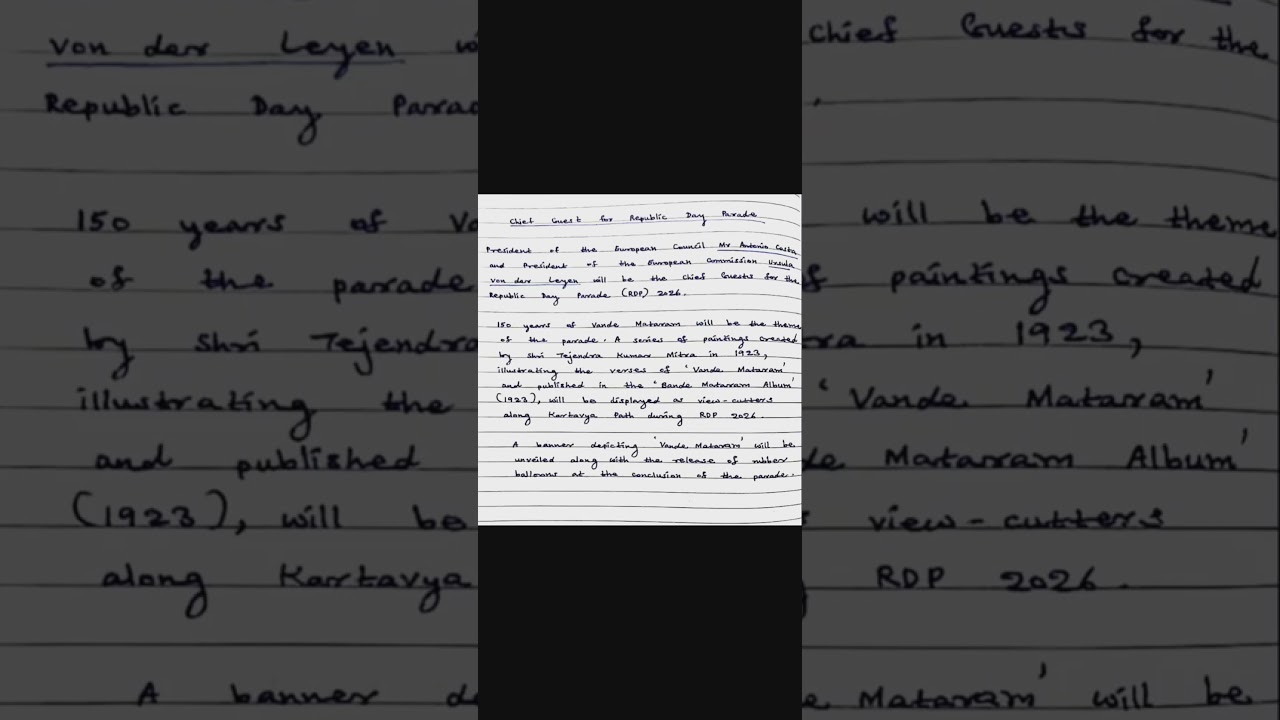 Chief Guest for Republic Day Parade
President of the European Council Mr Antonio Costa
and President of the European Commission Ursula
von der Leyen will be the Chief Guests for the
Republic Day Parade (RDP) 2026.
150 years of Vande Mataram will be the theme
of the parade. A series of paintings created
by Shri Tejendra Kumar Mitra in 1923,
illustrating the verses of 'Vande Mataram'
and published in the 'Bande Mataram Album'
(1923), will be displayed as view-cutters
along Kartavya Path during RDP 2026.
A banner depicting 'Vande Mataram' will be
unveiled along with the release of rubber
balloons at the conclusion of the parade.